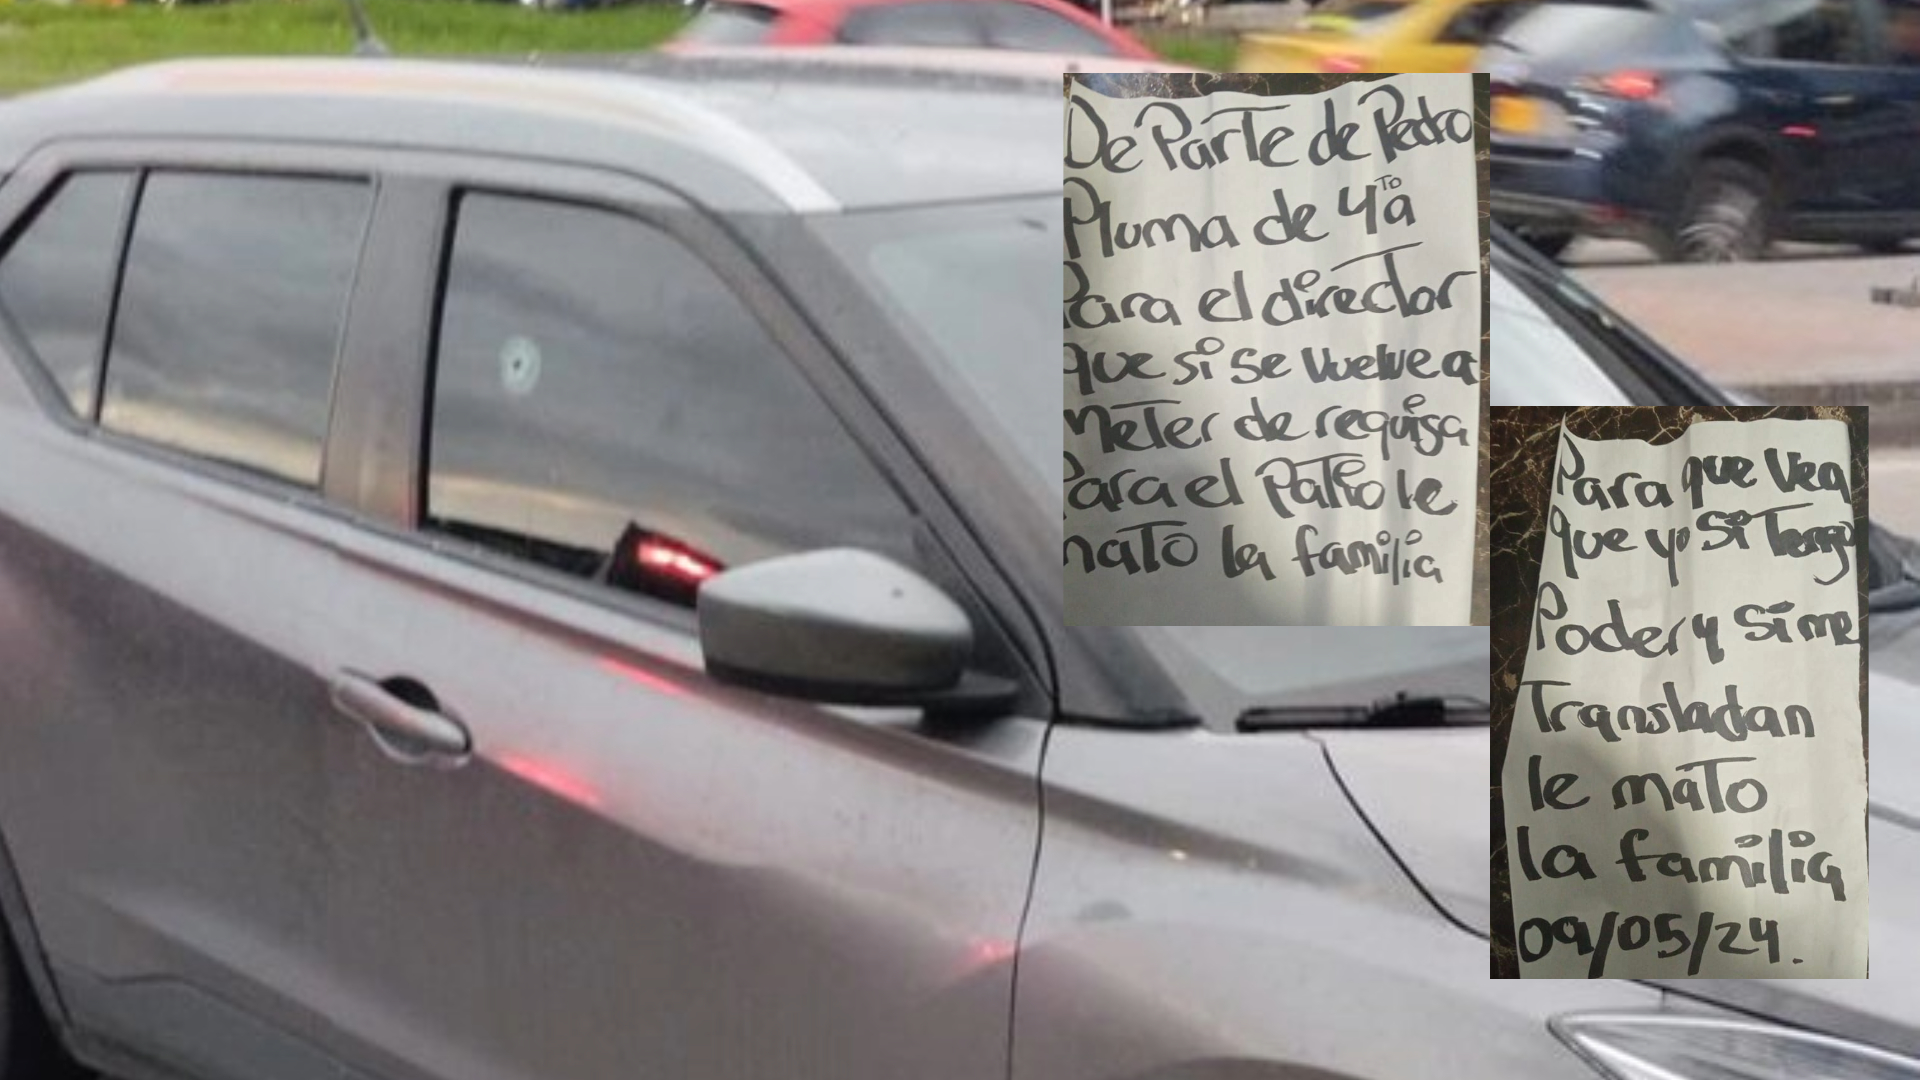 De Parte de Pedro
Pluma de 4to a
Para el director
que si se vuelve a
meter de requisa
Para el Patio le
mato la familia
Para que vea
que yo si Tengo
Poder y si me
Transladan
le mato
la familia
09/05/24.